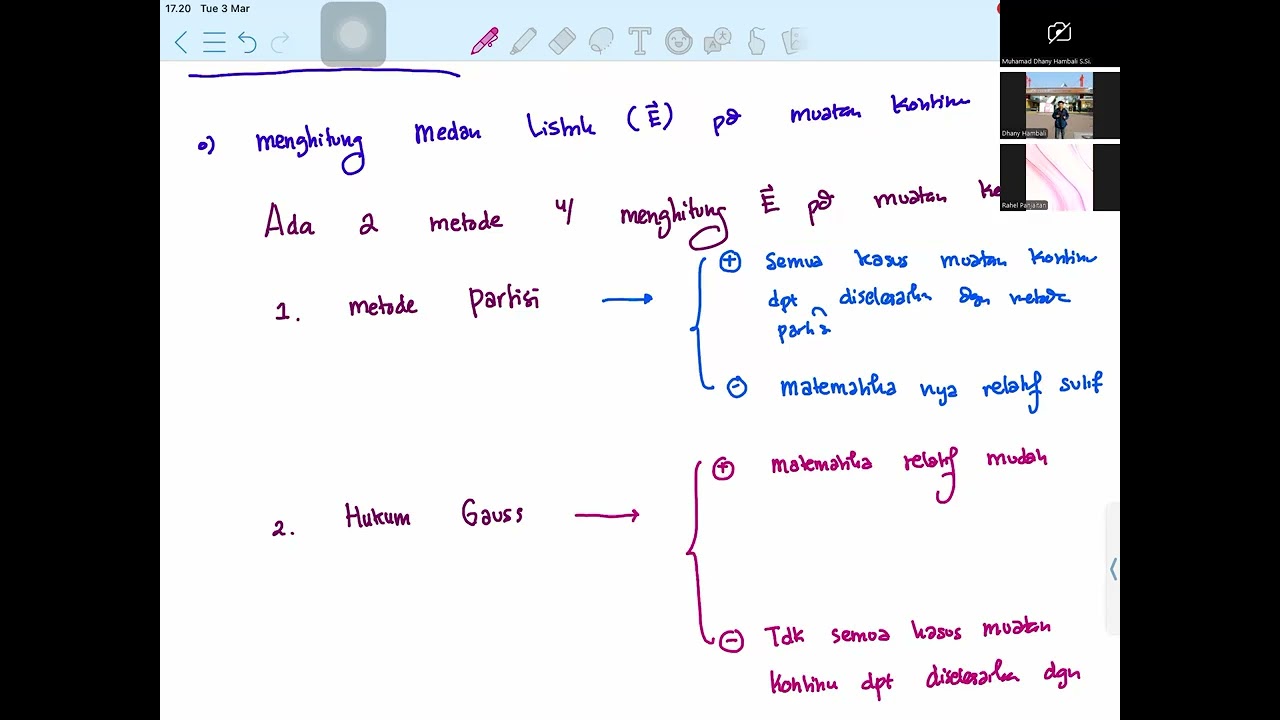 17.20 Tue 3 Mar
Muhamad Dhany Hambali S.Si.
Dhany Hambali
Rahel Panjaitan
o) menghitung medan listrik (E⃗) pd muatan kontinu
Ada 2 metode u/ menghitung E⃗ pd muatan ko
1. metode Partisi →
⊕ semua kasus muatan kontinu
dpt diselesaikan dgn metode
partisi
⊖ matematika nya relatif sulit
2. Hukum Gauss →
⊕ matematika relatif mudah
⊖ Tdk semua kasus muatan
kontinu dpt diselesaikan dgn